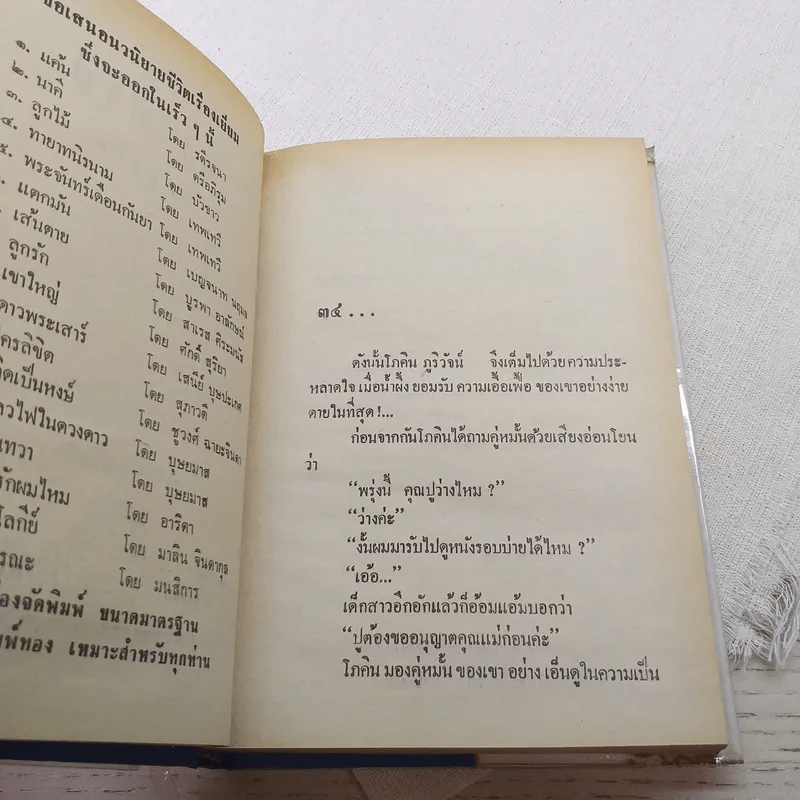 ขอเสนอนวนิยายชีวิตเรื่องเยี่ยม
ซึ่งจะออกในเร็ว ๆ นี้
๑. แค้น โดย รติรจนา
๒. นาคี โดย ตรีอภิรุม
๓. ลูกไม้ โดย บัวขาว
๔. ทายาทนิรนาม โดย เทพเทวี
๕. พระจันทร์เดือนกันยา โดย เทพเทวี
แดกมัน โดย เบญจนาท
เส้นตาย โดย บูรพา อาลักษณ์
ลูกรัก โดย สาเรส ศิระมนัส
เขาใหญ่ โดย ศักดิ์ สุริยา
ดาวพระเสาร์ โดย เสนีย์ บุษปะเกศ
ใครลิขิต โดย สุภาวดี
ิดเป็นหงษ์ โดย ชูวงศ์ ฉายะจินดา
วไฟในดวงดาว โดย บุษยมาส
นทวา โดย บุษยมาส
รักผมไหม โดย อาริตา
โลกีย์ โดย มาลิน จินดากุล
รณะ โดย มนสิการ
องจัดพิมพ์ ขนาดมาตรฐาน
มพ์ทอง เหมาะสำหรับทุกท่าน
๓๔ ...
ดังนั้นโภคิน ภูริวัจน์ จึงเต็มไปด้วย ความประ-
หลาดใจ เมื่อน้ำผึ้ง ยอมรับ ความเอื้อเฟื้อ ของเขาอย่างง่าย
ดายในที่สุด !...
ก่อนจากกันโภคินได้ถามคู่หมั้นด้วยเสียงอ่อนโยน
ว่า
“พรุ่งนี้ คุณปูว่างไหม ?”
“ว่างค่ะ”
“งั้นผมมารับไปดูหนังรอบบ่ายได้ไหม ?”
“เอ้อ...”
เด็กสาวอึกอักแล้วก็อ้อมแอ้มบอกว่า
“ปูต้องขออนุญาตคุณแม่ก่อนค่ะ”
โภคิน มองคู่หมั้น ของเขา อย่าง เอ็นดูในความเป็น